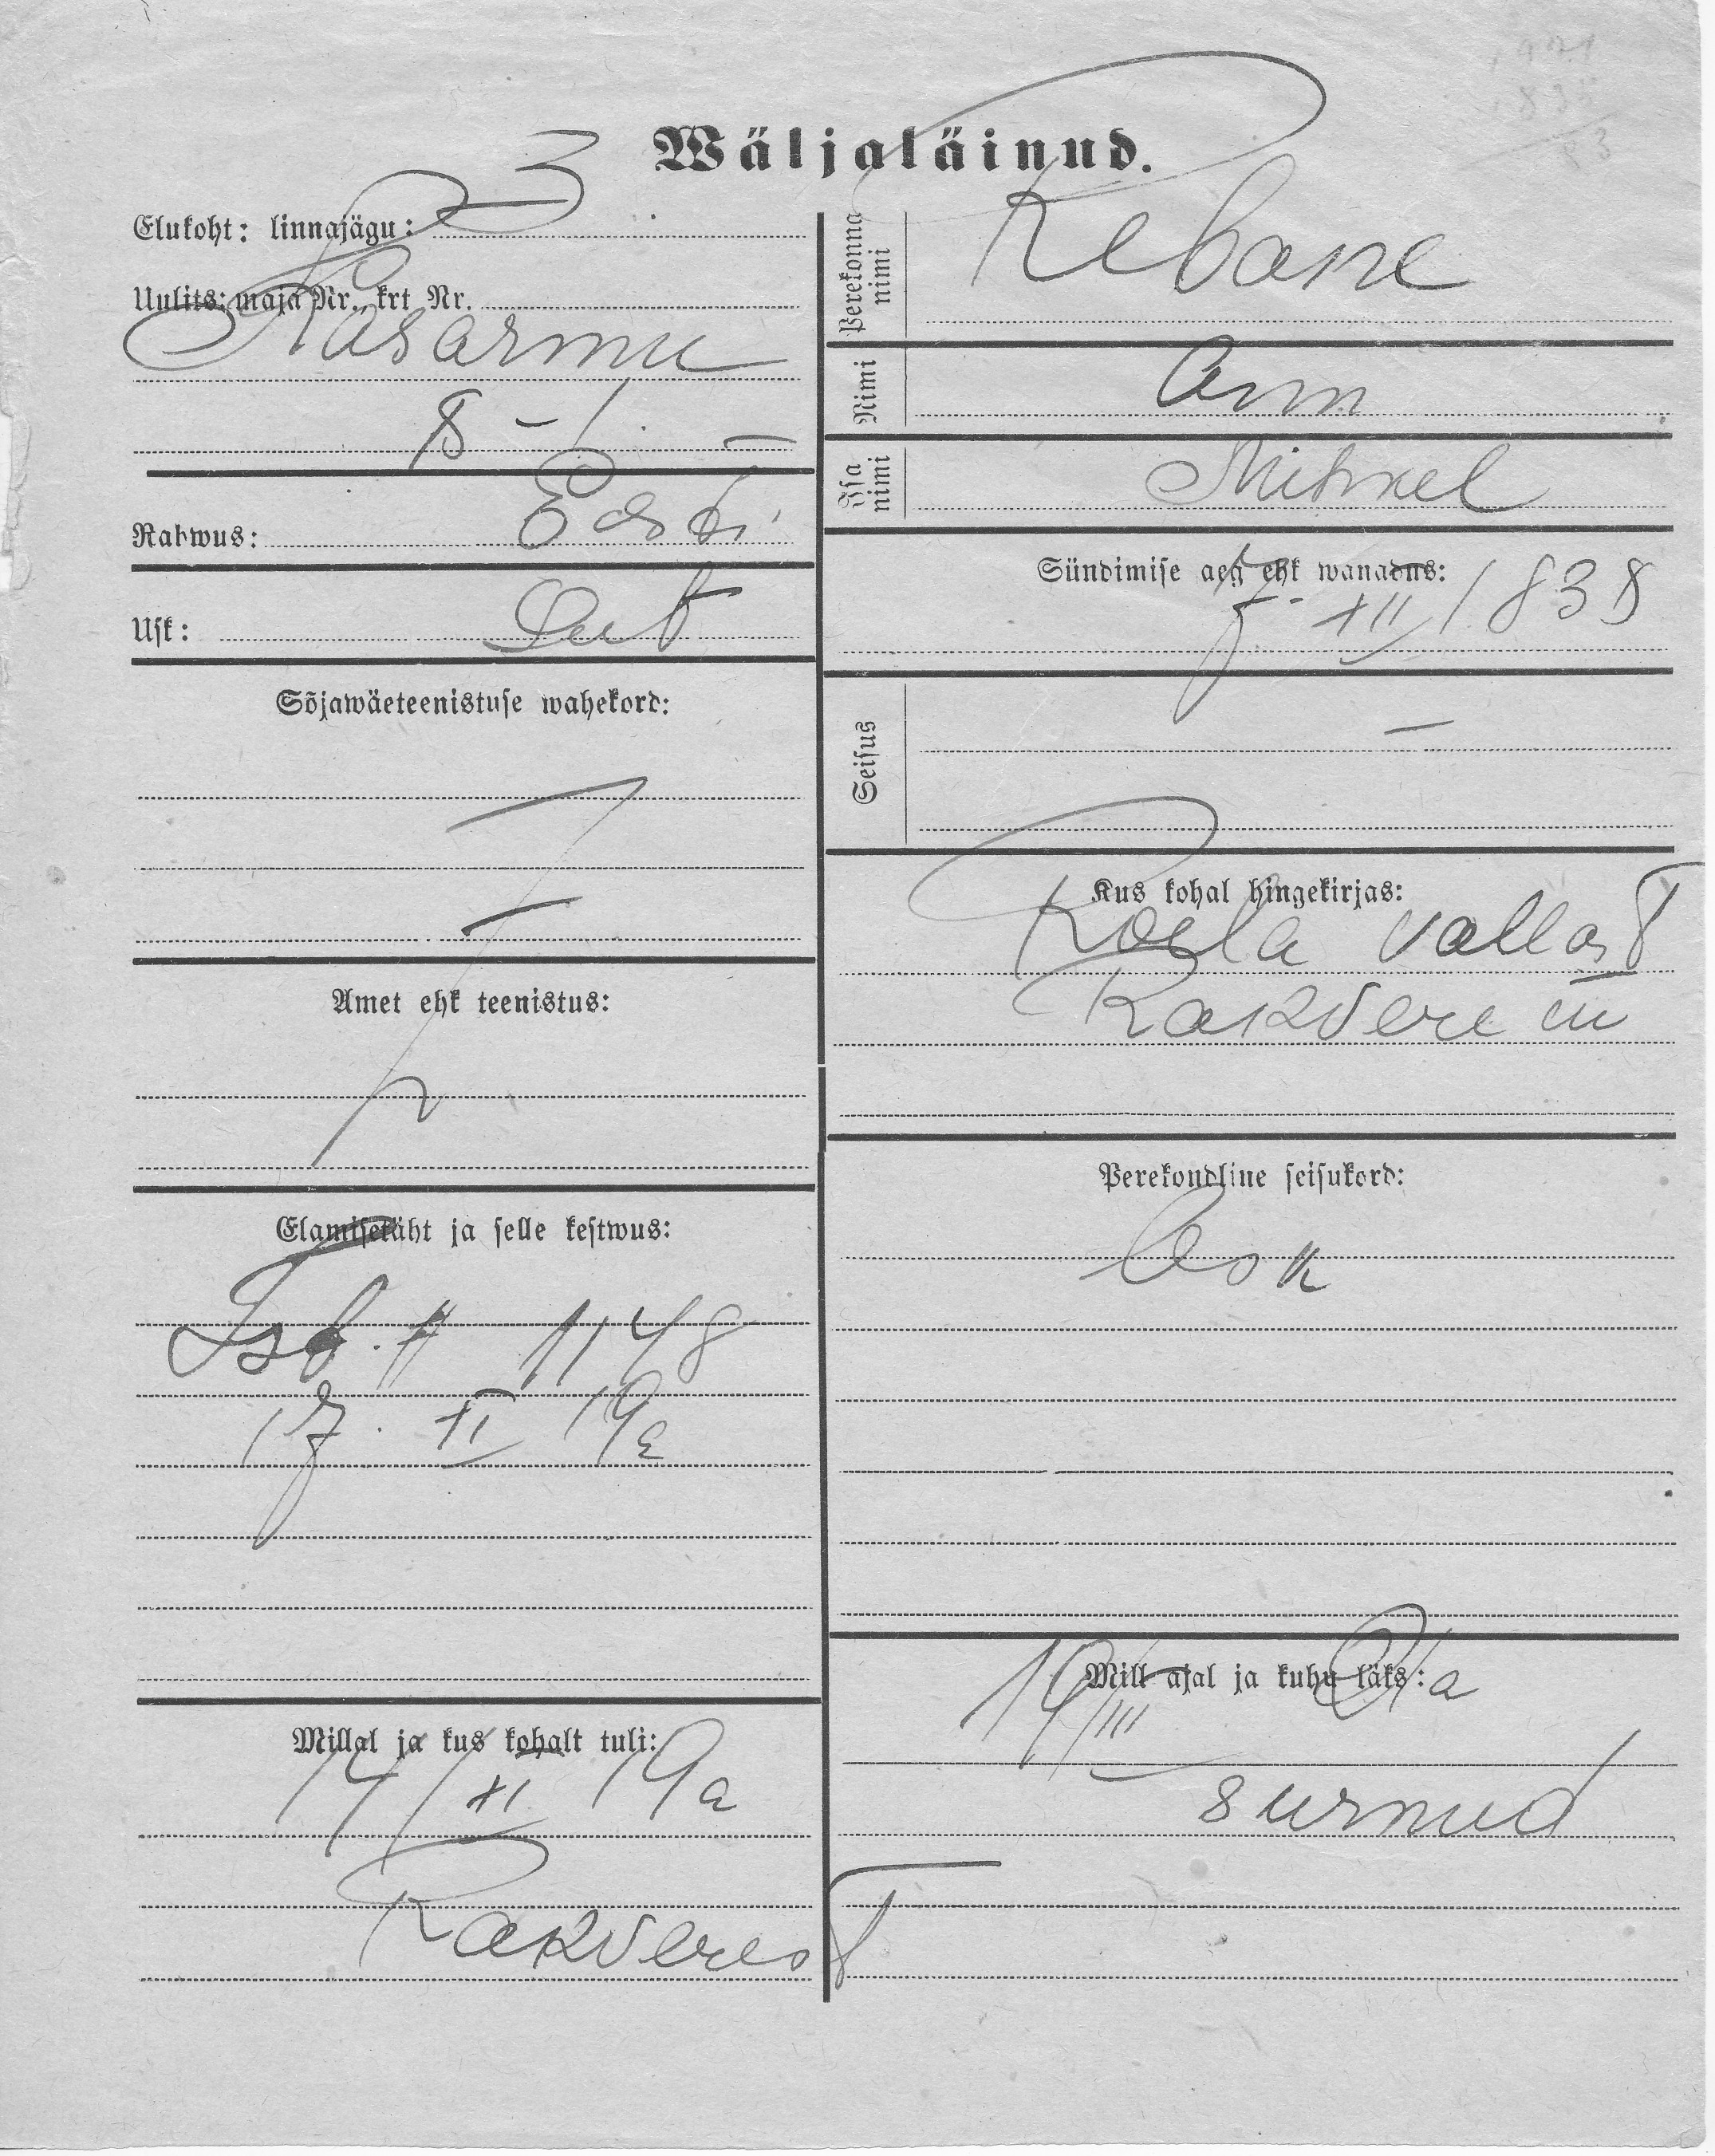 Wäljaläinud.
Elukoht: linnajägu: 3
Uulits: maja Nr., krt Nr.
Kasarmu
8 - 1. =
Rahwus: Eesti
Usk: Lut
Sõjawäeteenistuse wahekord:
Amet ehk teenistus:
Elamisetäht ja selle kestwus:
Isb. # 1148
17. XI 19a
Millal ja kus kohalt tuli:
14/XI 19a
Rakverest
Perekonna nimi
Rebane
Nimi
Ann
Isa nimi
Mihkel
Sündimise aeg ehk wanadus:
5. XII 1838
Seisus
—
Kus kohal hingekirjas:
Roela vallast
Rakvere m
Perekondline seisukord:
Lesk
Mill ajal ja kuhu läks:
19/III 21a
surnud